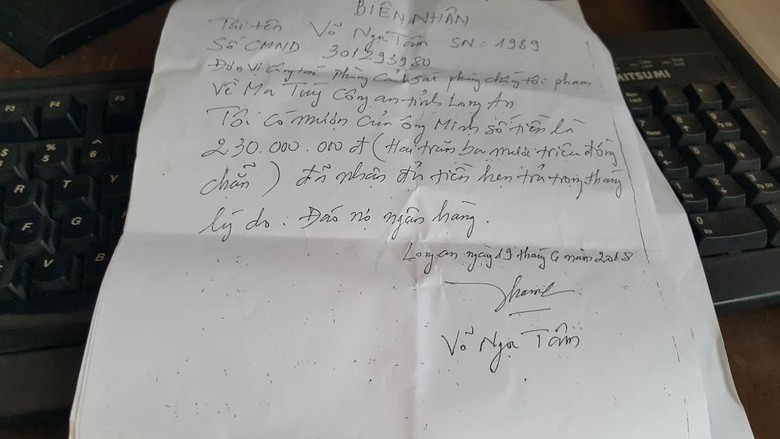 BIÊN NHÂN
Tôi tên : Võ Ngọc Tâm SN : 1989
Số CMND : 301293980
Đơn vị công tác Phòng Cảnh sát phòng chống tội phạm
Về Ma Túy Công an tỉnh Long An
Tôi có mượn của ông Minh số tiền là
230.000.000 đ (Hai trăm ba mươi triệu đồng
chẵn) đã nhận đủ tiền hẹn trả trong tháng
lý do : Đáo nợ ngân hàng.
Long an ngày 19 tháng 6 năm 2018
Võ Ngọc Tâm
MITSUMI